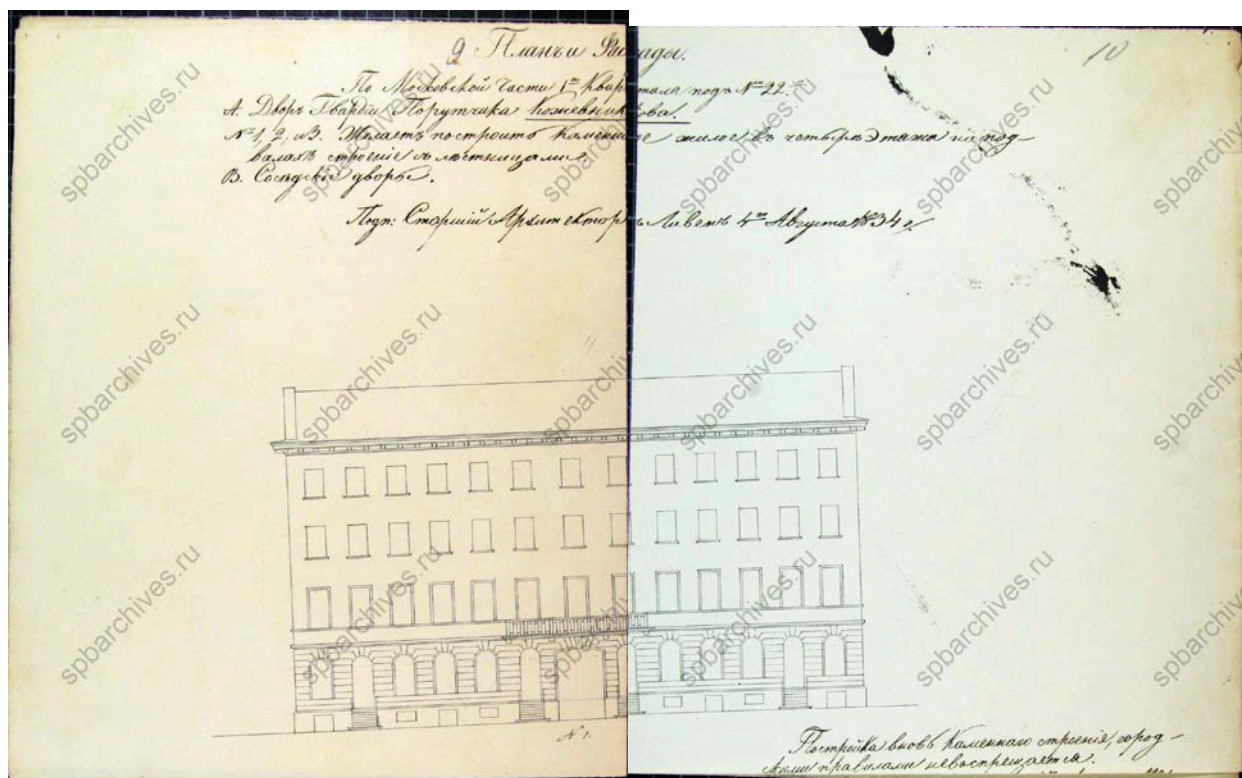 9 Планъ и Фасады. 10
По Московской Части 1го Квартала подъ № 22м
А. Дворъ Гвардіи Порутчика Кожевникова.
№ 1, 2, и 3. Желаетъ построить каменное жилое въ четыре этажа на под-
валахъ строеніе съ лѣстницами
В. Сосѣдскіе дворы.
Подп: Старшій Архитекторъ Ливенъ 4го Августа 1834 г.
№ 1.
Постройка вновь каменнаго строенія, город-
скими правилами невоспрещается.
spbarchives.ru